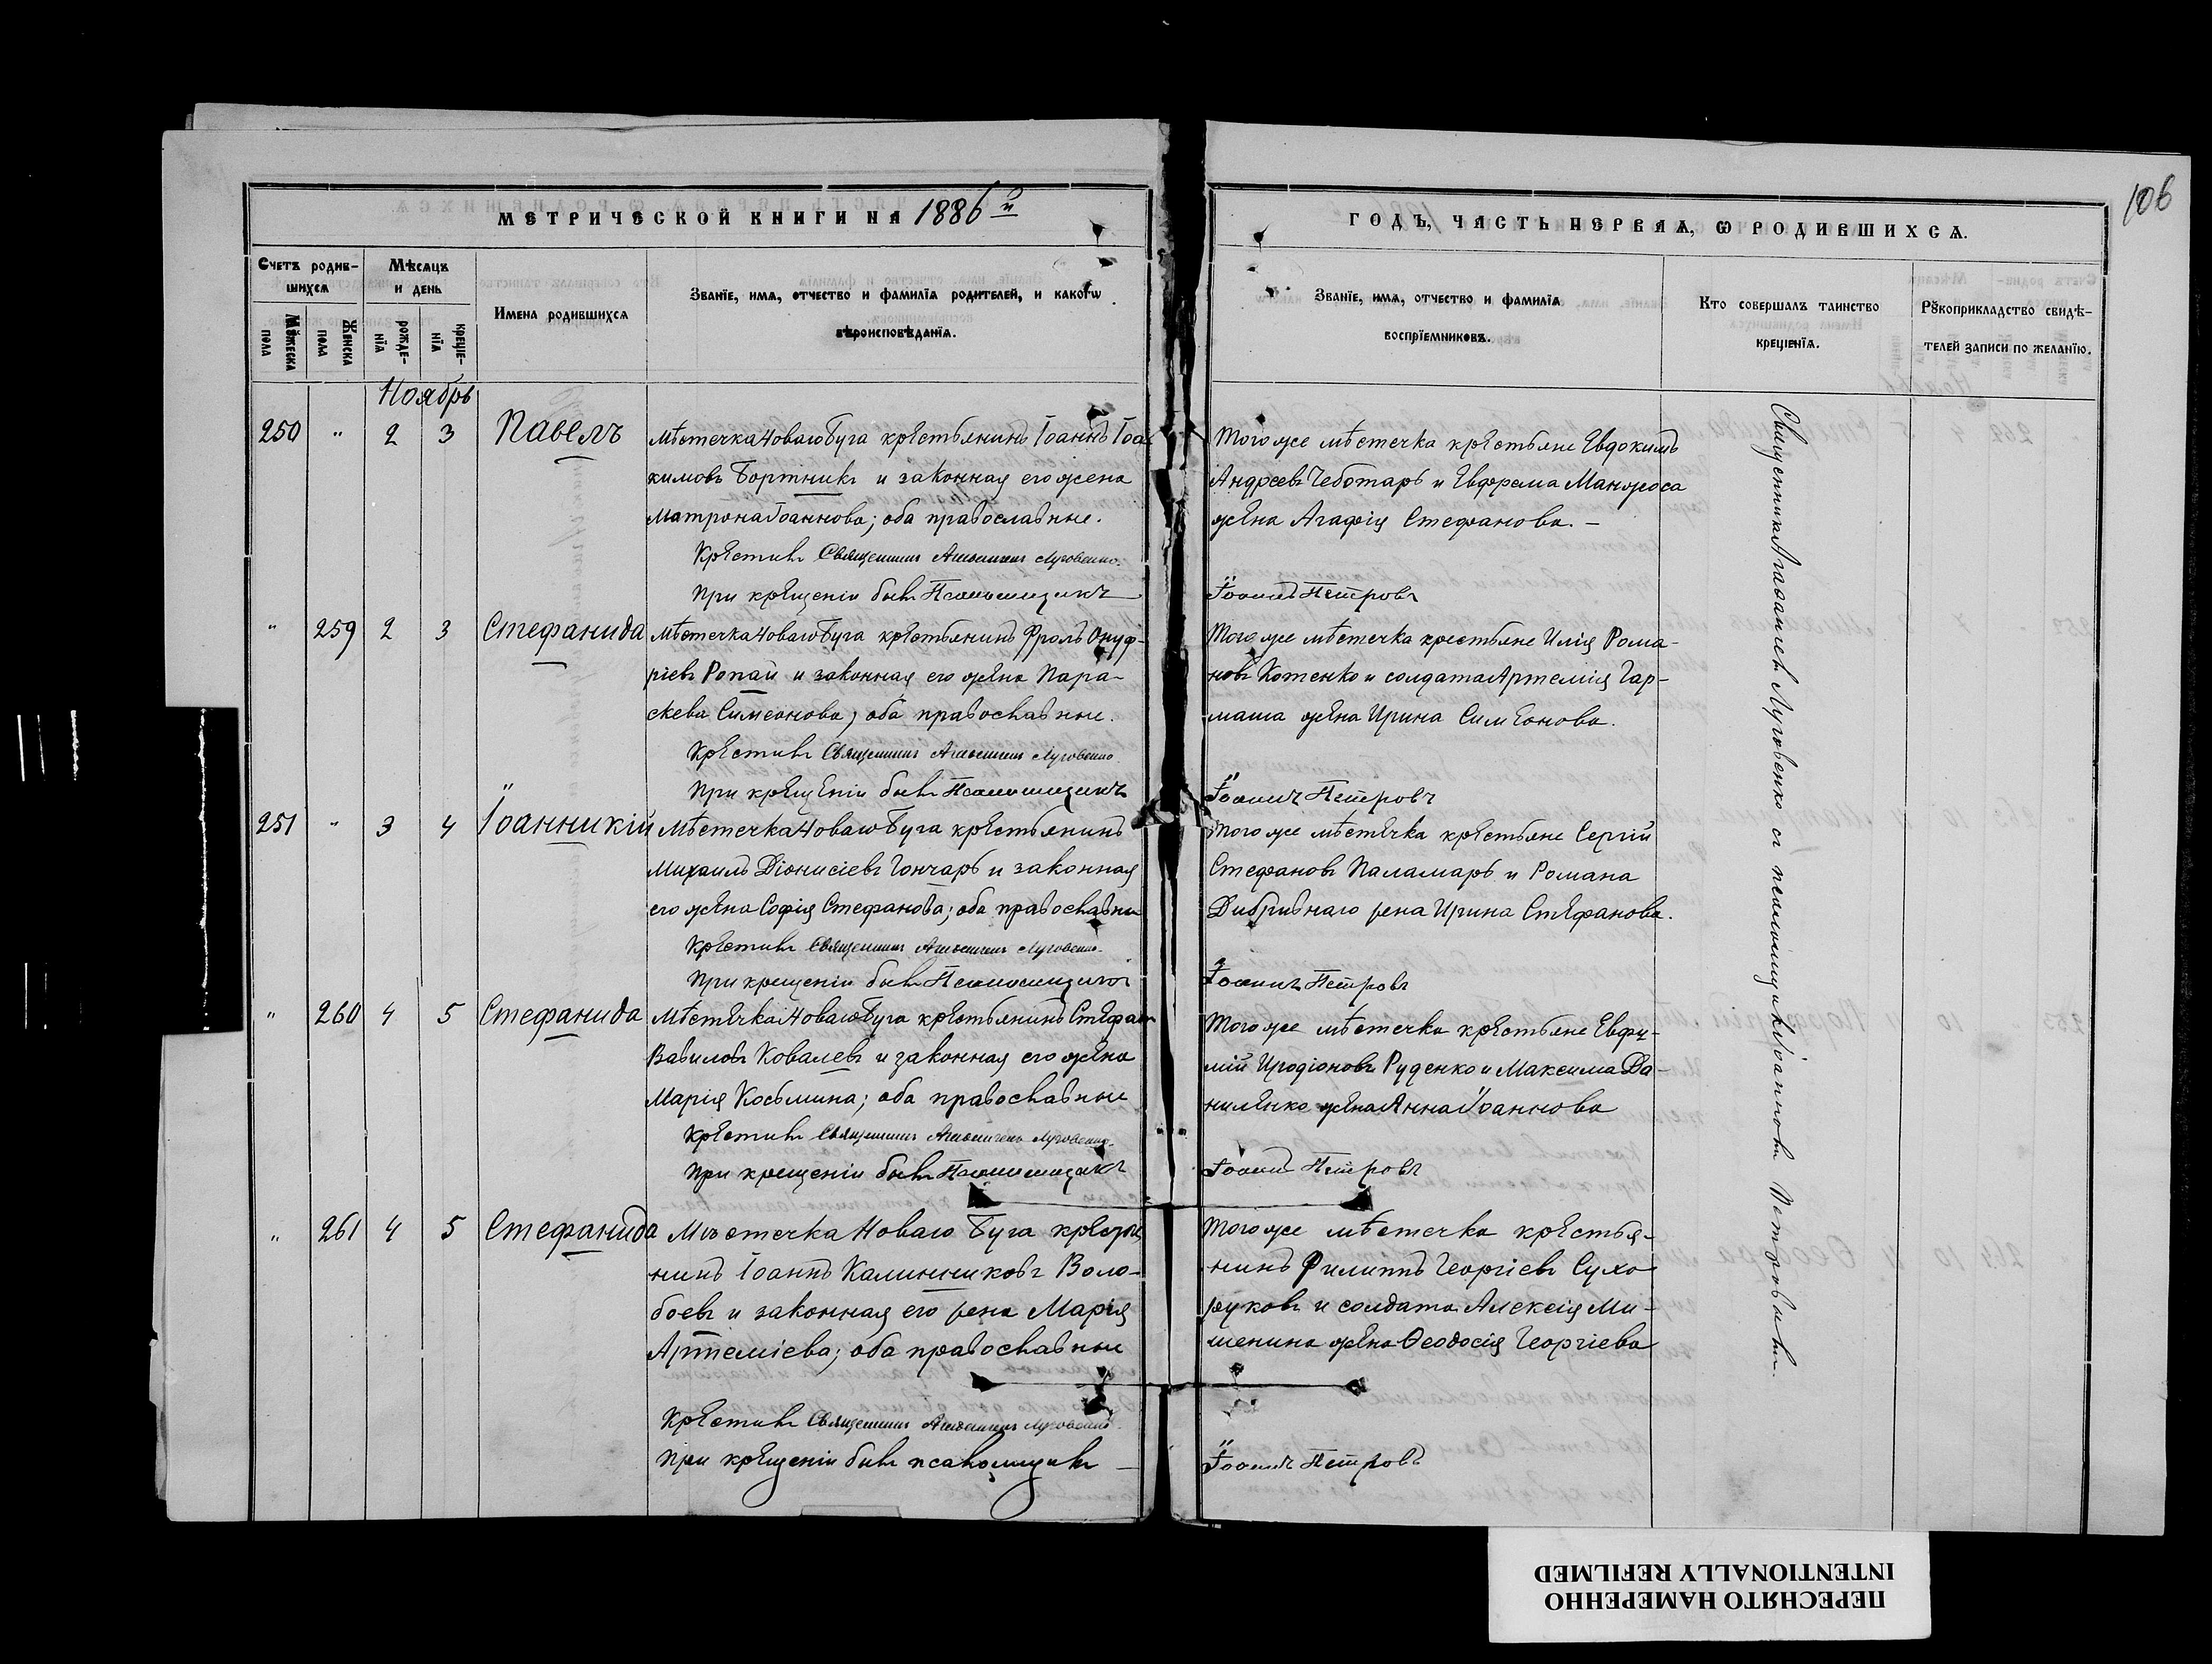 106
МЕТРИЧЕСКОЙ КНИГИ НА 1886й
ГОДЪ, ЧАСТЬ ПЕРВАѦ, Ѡ РОДИВШИХСѦ.
Счетъ родив-
шихсѧ
Мѣсѧцъ
и день
Мꙋжеска пола
Женска пола
рожде-
нїѧ
креще-
нїѧ
Имена родившихсѧ
Званїе, имѧ, отчество и фамилїѧ родителей, и какогѡ
вѣроисповѣданїѧ.
Званїе, имѧ, отчество и фамилїѧ
воспрїемниковъ.
Кто совершалъ таинство
крещенїѧ.
Рꙋкоприкладство свидѣ-
телей записи по желанїю.
Ноябрь
250 " 2 3 Павелъ
Мѣстечка Новаго Буга крестьянинъ Іоаннъ Іоа-
кимовъ Бортникъ и законная его жена
Матрона Іоаннова; оба православные.
Крестилъ Священникъ Луговенко.
При крещеніи былъ Псаломщикъ
Того же мѣстечка крестьяне Евдокимъ
Андреевъ Чеботарь и Ефрема Манжоса
жена Агафія Стефанова. –
Іоаннъ Петровъ
" 259 2 3 Стефанида
Мѣстечка Новаго Буга крестьянинъ Фролъ Онуф-
ріевъ Ропай и законная его жена Пара-
скева Симеонова, оба православные.
Крестилъ Священникъ Луговенко
При крещеніи былъ Псаломщикъ
Того же мѣстечка крестьяне Илія Рома-
новъ Котенко и солдата Артемія Гар-
маша жена Ирина Симеонова.
Іоаннъ Петровъ
251 " 3 4 Іоанникій
Мѣстечка Новаго Буга крестьянинъ
Михаилъ Діонисіевъ Гончаръ и законная
его жена Софія Стефанова; оба православны
Крестилъ Священникъ Луговенко.
При крещеніи былъ Псаломщикъ
Того же мѣстечка крестьяне Сергій
Стефановъ Паламарь и Романа
Дибривнаго жена Ирина Стефанова.
Іоаннъ Петровъ
" 260 4 5 Стефанида
Мѣстечка Новаго Буга крестьянинъ Стефан
Вавиловъ Ковалевъ и законная его жена
Марія Косьмина; оба православные
Крестилъ Священникъ Луговенко.
При крещеніи былъ Псаломщикъ
Того же мѣстечка крестьяне Евфи-
мій Иродіоновъ Руденко и Максима Да-
ниленко жена Анна Іоаннова
Іоаннъ Петровъ
" 261 4 5 Стефанида
Мѣстечка Новаго Буга крестья
нинъ Іоаннъ Калинниковъ Воло-
боевъ и законная его жена Марія
Артеміева; оба православные
Крестилъ Священникъ Луговенко.
При крещеніи былъ псаломщикъ –
Того же мѣстечка крестья-
нинъ Филиппъ Георгіевъ Сухо
руковъ и солдата Алексія Ми-
шенина жена Ѳеодосія Георгіева
Іоаннъ Петровъ
Священникъ Луговенко съ псаломщикомъ Іоанномъ Петровымъ.
ПЕРЕСНЯТО НАМЕРЕННО
INTENTIONALLY REFILMED